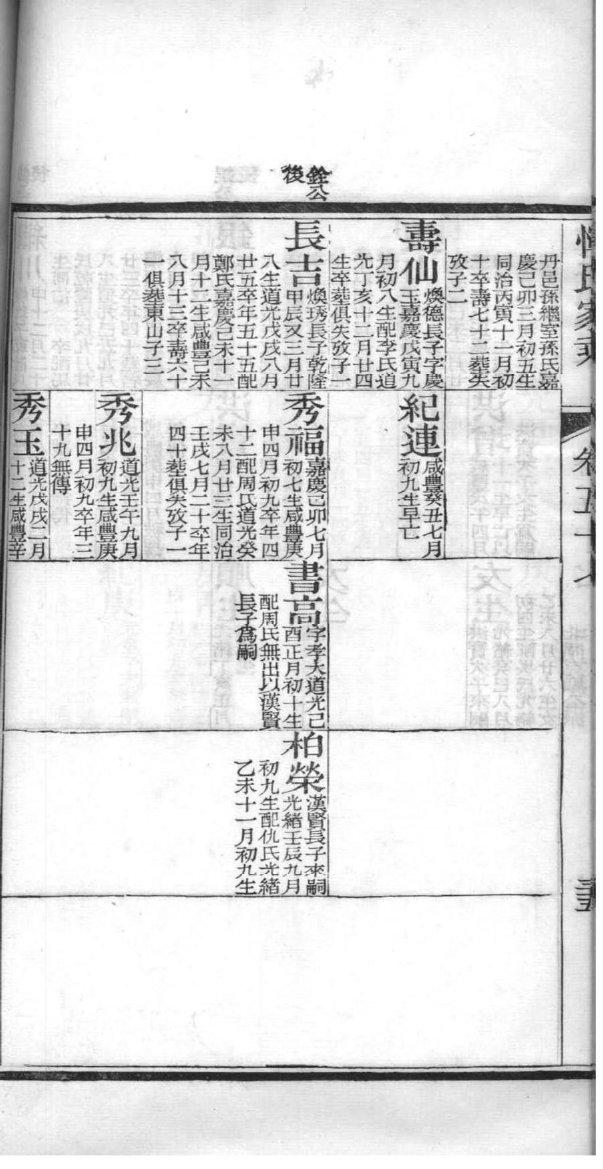 氏家乘
卷五十七
銓公
後
丹邑孫繼室孫氏嘉
慶己卯三月初五生
同治丙寅十一月初
十卒壽七十二葬失
攷子二
壽仙
煥德長子字慶
玉嘉慶戊寅九
月初八生配李氏道
光丁亥十二月廿四
生卒葬俱失攷子一
長吉
煥琇長子乾隆
甲辰又三月廿
八生道光戊戌八月
廿五卒年五十五配
鄭氏嘉慶己未十一
月十二生咸豐己未
八月十三卒壽六十
一俱葬東山子三
紀連
咸豐癸丑七月
初九生早亡
秀福
嘉慶己卯七月
初七生咸豐庚
申四月初九卒年四
十二配周氏道光癸
未八月廿三生同治
壬戌七月二十卒年
四十葬俱失攷子一
秀兆
道光壬午九月
初九生咸豐庚
申四月初九卒年三
十九無傳
秀玉
道光戊戌二月
十二生咸豐辛
書高
字孝大道光己
酉正月初十生
配周氏無出以漢賢
長子爲嗣
柏榮
漢賢長子來嗣
光緒壬辰九月
初九生配仇氏光緒
乙未十一月初九生